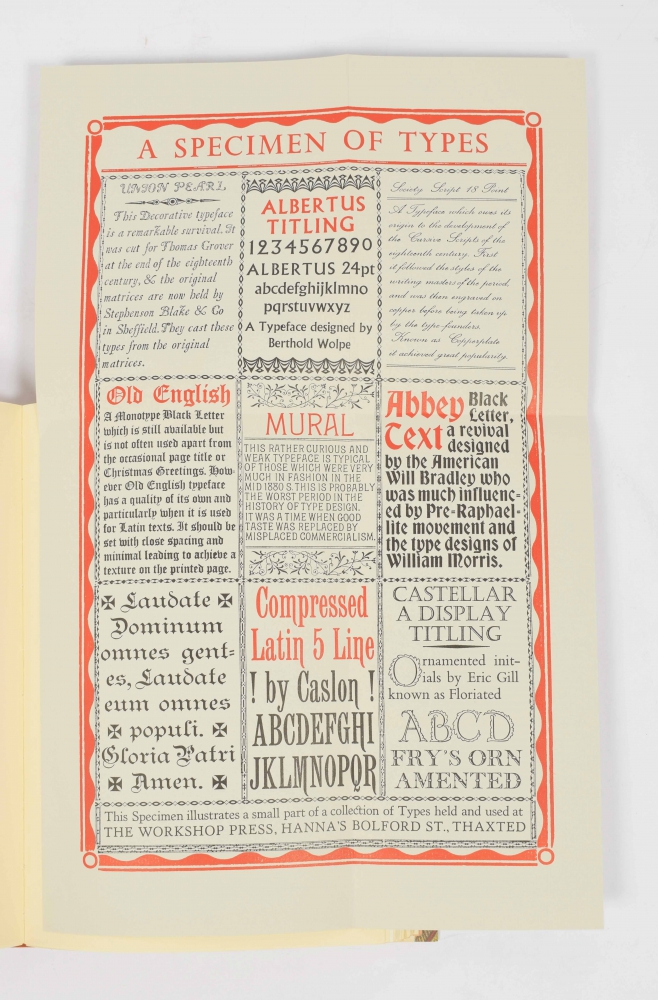 A SPECIMEN OF TYPES
UNION PEARL
This Decorative typeface
is a remarkable survival. It
was cut for Thomas Grover
at the end of the eighteenth
century, & the original
matrices are now held by
Stephenson Blake & Co
in Sheffield. They cast these
types from the original
matrices.
ALBERTUS
TITLING
1234567890
ALBERTUS 24pt
abcdefghijklmno
pqrstuvwxyz
A Typeface designed by
Berthold Wolpe
Society Script 18 Point
A Typeface which owes its
origin to the development of
the Cursive Scripts of the
eighteenth century. First
it followed the styles of the
writing masters of the period,
and was then engraved on
copper before being taken up
by the type-founders.
Known as Copperplate
it achieved great popularity.
Old English
A Monotype Black Letter
which is still available but
is not often used apart from
the occasional page title or
Christmas Greetings. How-
ever Old English typeface
has a quality of its own and
particularly when it is used
for Latin texts. It should be
set with close spacing and
minimal leading to achieve a
texture on the printed page.
MURAL
THIS RATHER CURIOUS AND
WEAK TYPEFACE IS TYPICAL
OF THOSE WHICH WERE VERY
MUCH IN FASHION IN THE
MID 1880 S. THIS IS PROBABLY
THE WORST PERIOD IN THE
HISTORY OF TYPE DESIGN.
IT WAS A TIME WHEN GOOD
TASTE WAS REPLACED BY
MISPLACED COMMERCIALISM.
Abbey Black
Letter,
Text a revival
designed
by the American
Will Bradley who
was much influenc-
ed by Pre-Raphael-
lite movement and
the type designs of
William Morris.
✠ Laudate ✠
Dominum
omnes gent-
es, Laudate
eum omnes
✠ populi. ✠
Gloria Patri
✠ Amen. ✠
Compressed
Latin 5 Line
! by Caslon !
ABCDEFGHI
JKLMNOPQR
CASTELLAR
A DISPLAY
TITLING
Ornamented init-
ials by Eric Gill
known as Floriated
ABCD
FRY'S ORN
AMENTED
This Specimen illustrates a small part of a collection of Types held and used at
THE WORKSHOP PRESS, HANNA'S BOLFORD ST., THAXTED